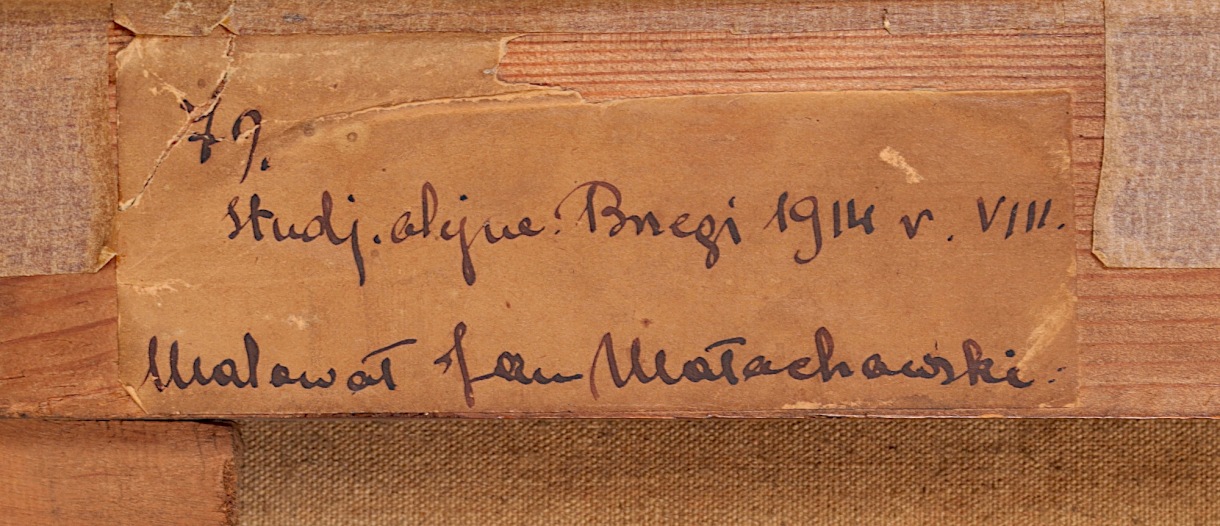 79.
Studj. olejne. Brzegi 1914 r. VIII.
Malował Jan Małachowski.